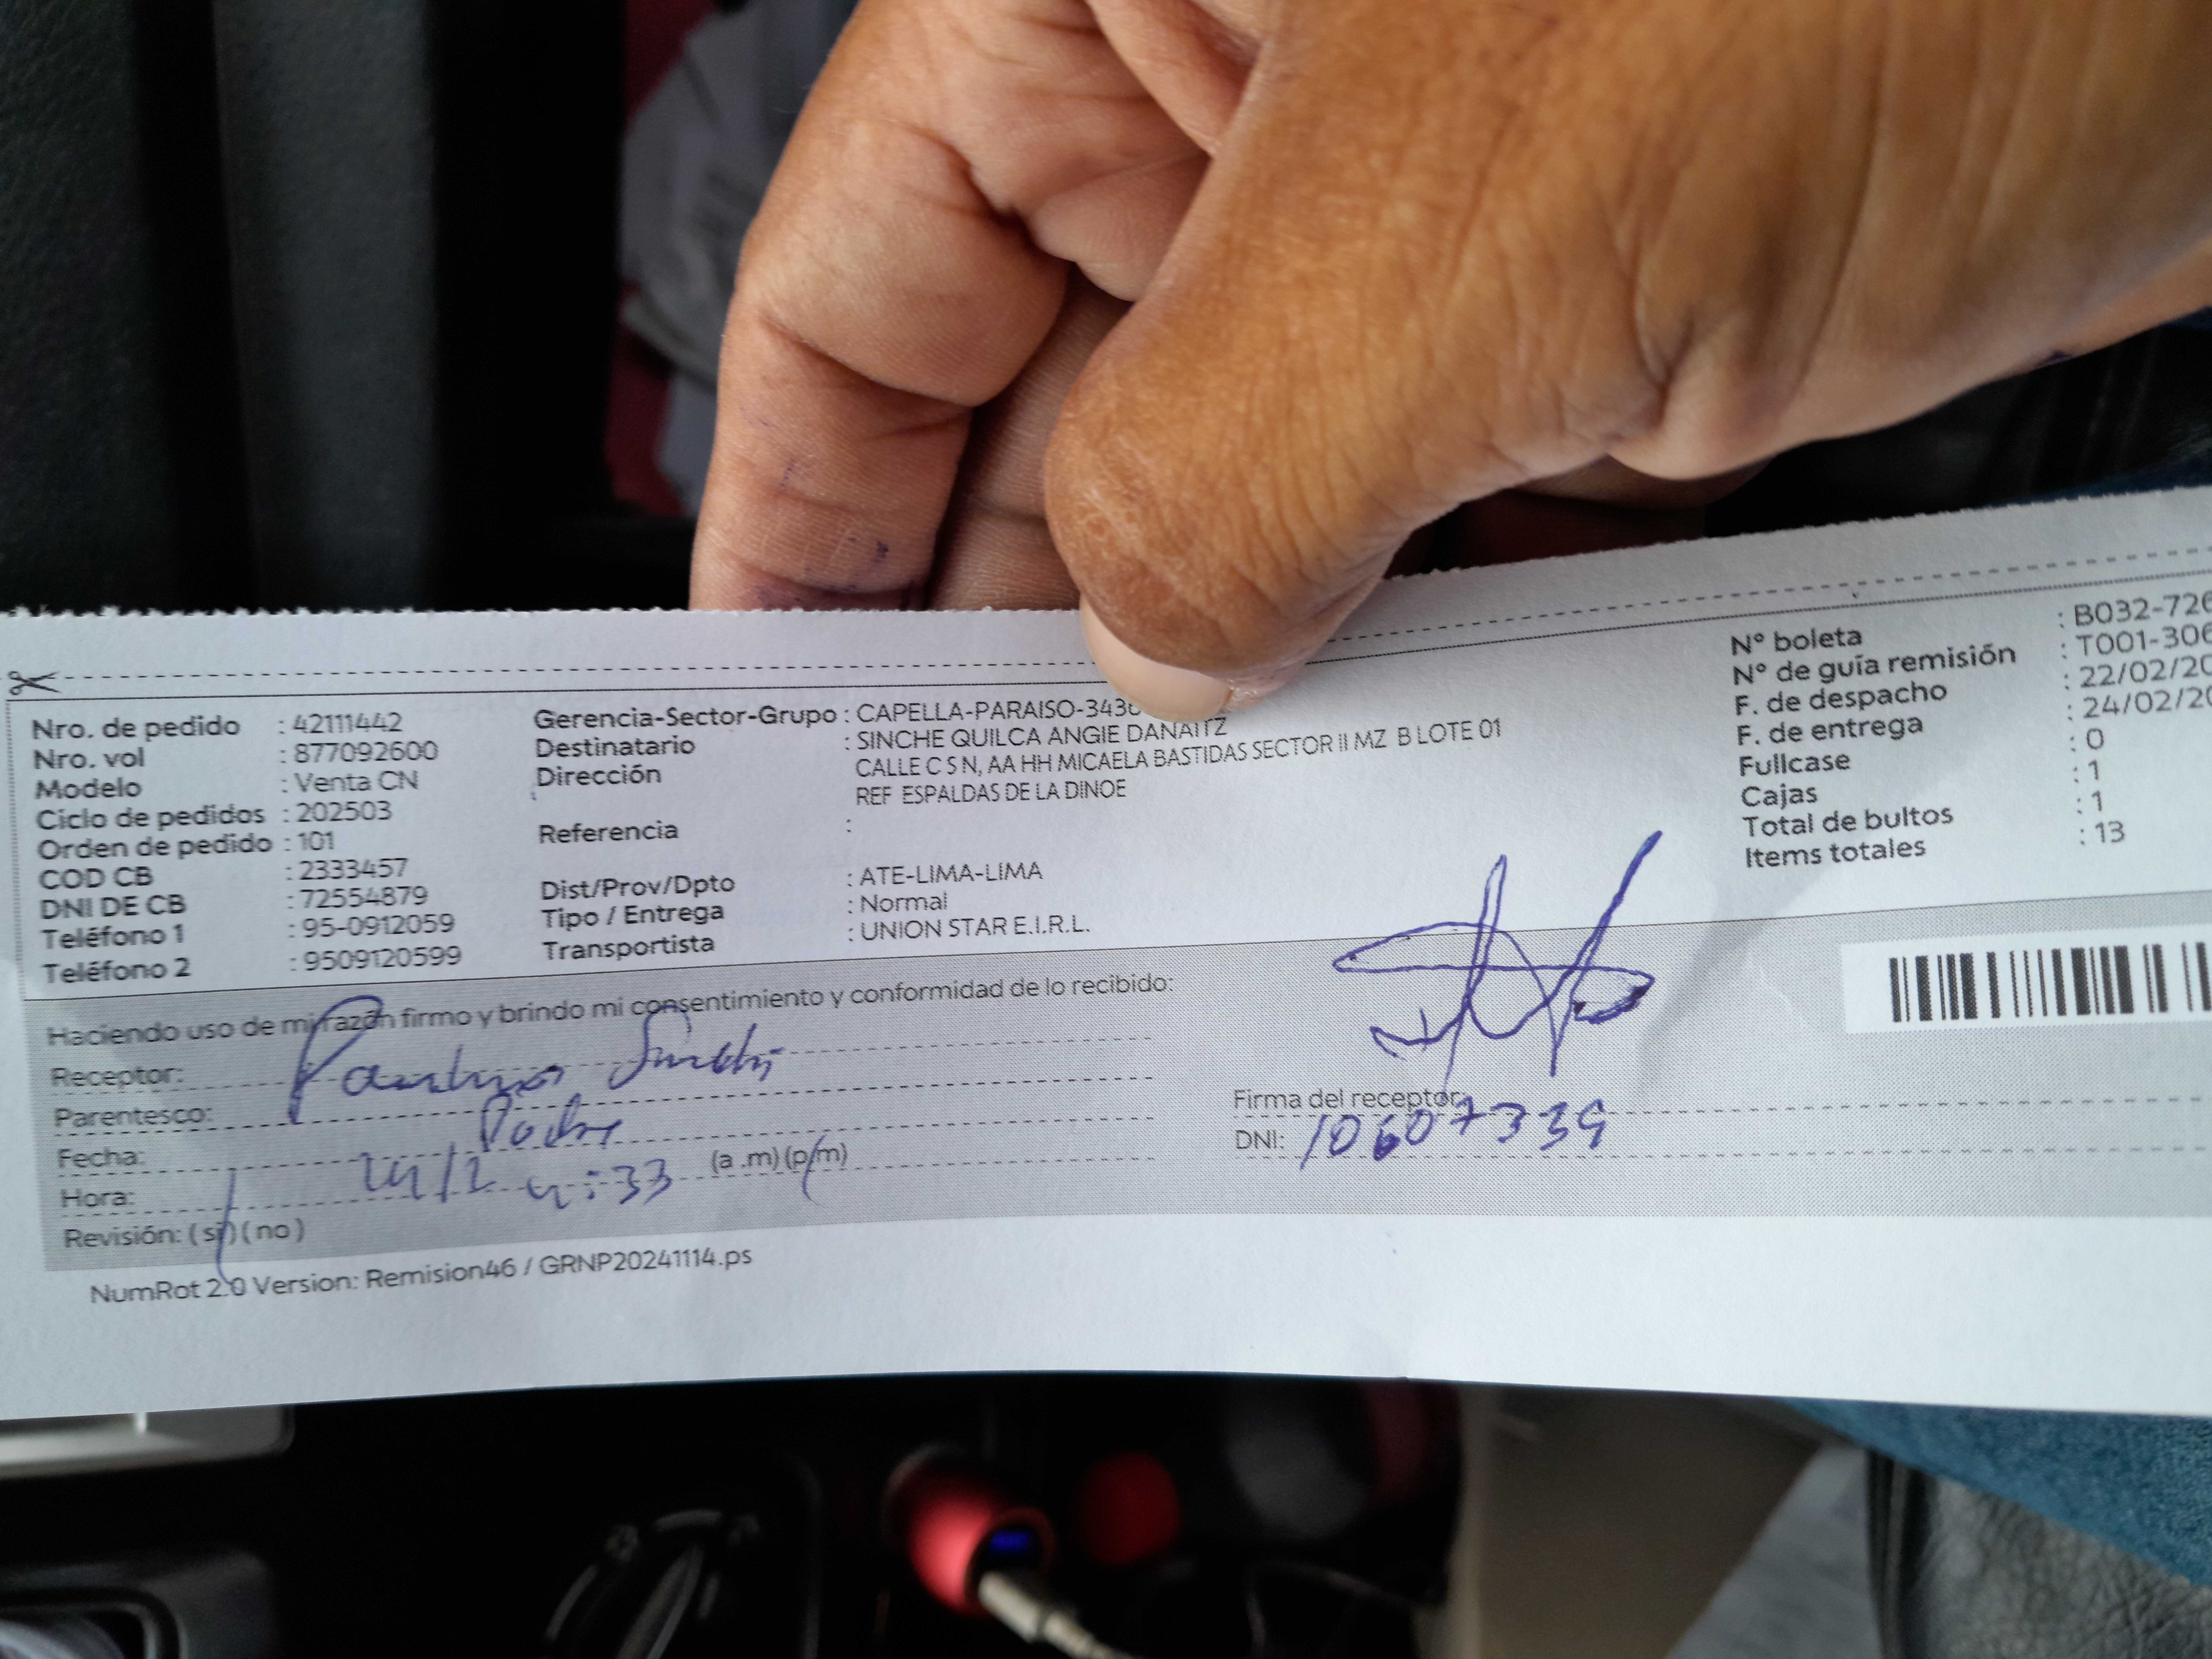 Nro. de pedido : 42111442
Nro. vol : 877092600
Modelo : Venta CN
Ciclo de pedidos : 202503
Orden de pedido : 101
COD CB : 2333457
DNI DE CB : 72554879
Teléfono 1 : 95-0912059
Teléfono 2 : 9509120599
Gerencia-Sector-Grupo : CAPELLA-PARAISO-343
Destinatario : SINCHE QUILCA ANGIE DANAITZ
Dirección CALLE C S N, AA HH MICAELA BASTIDAS SECTOR II MZ B LOTE 01
REF ESPALDAS DE LA DINOE
Referencia :
Dist/Prov/Dpto : ATE-LIMA-LIMA
Tipo / Entrega : Normal
Transportista : UNION STAR E.I.R.L.
N° boleta : B032-726
N° de guía remisión : T001-306
F. de despacho : 22/02/20
F. de entrega : 24/02/20
Fullcase : 0
Cajas : 1
Total de bultos : 1
Items totales : 13
Haciendo uso de mi razón firmo y brindo mi consentimiento y conformidad de lo recibido:
Receptor:
Parentesco: Padre
Fecha: 24/2
Hora: 4:33 (a .m) (p.m)
Revisión: ( si ) ( no )
Firma del receptor:
DNI: 10607339
NumRot 2.0 Version: Remision46 / GRNP20241114.ps